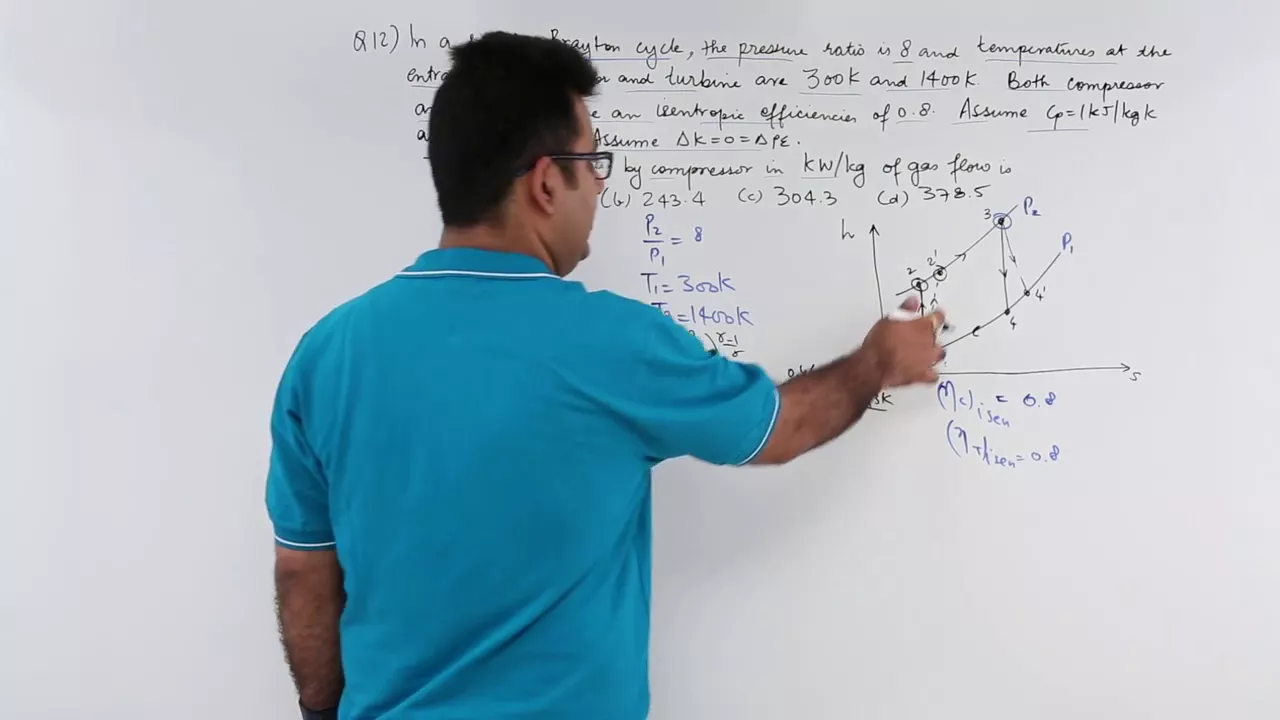 Q12) In a Brayton cycle, the pressure ratio is 8 and temperatures at the
and turbine are 300K and 1400K. Both compressor
an isentropic efficiencies of 0.8. Assume Cp=1kJ/kgk
Assume ΔK=0=ΔPE.
by compressor in kW/kg of gas flow is
(b) 243.4 (c) 304.3 (d) 378.5
P2/P1 = 8
T1=300K
=1400K
r-1/r
h
2
2'
3
P2
P1
4'
4
s
(ηc)isen = 0.8
(ηT)isen=0.8